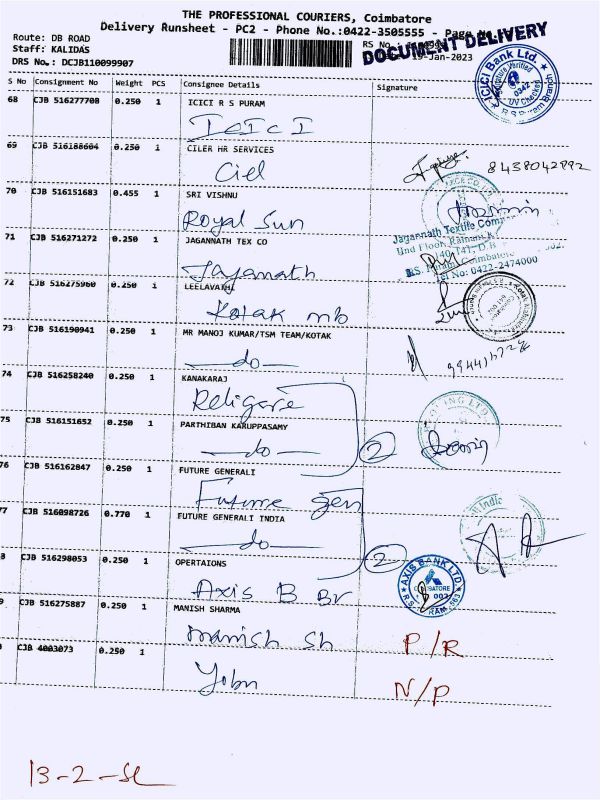 THE PROFESSIONAL COURIERS, Coimbatore
Delivery Runsheet - PC2 - Phone No.:0422-3505555 - Page
Route: DB ROAD
Staff: KALIDAS
DRS No.: DCJB110099907
DOCUMENT DELIVERY
19-Jan-2023
S No Consignment No Weight PCS Consignee Details Signature
68 CJB 516277708 0.250 1 ICICI R S PURAM
ICICI
ICICI Bank Ltd.
69 CJB 516188604 0.250 1 CILER HR SERVICES
Ciel
8438042892
70 CJB 516151683 0.455 1 SRI VISHNU
Royal Sun
71 CJB 516271272 0.250 1 JAGANNATH TEX CO
Jaganath
Jagannath Textile Com
Tel No: 0422-2474000
72 CJB 516275960 0.250 1 LEELAVATHI
Kotak mb
73 CJB 516190941 0.250 1 MR MANOJ KUMAR/TSM TEAM/KOTAK
do
74 CJB 516258240 0.250 1 KANAKARAJ
Religare
75 CJB 516151652 0.250 1 PARTHIBAN KARUPPASAMY
do
2
76 CJB 516162847 0.250 1 FUTURE GENERALI
Future Gen
77 CJB 516098726 0.770 1 FUTURE GENERALI INDIA
do
2
8 CJB 516298053 0.250 1 OPERTAIONS
Axis B Br
AXIS BANK LTD.
9 CJB 516275887 0.250 1 MANISH SHARMA
manish Sh
P/R
CJB 4003073 0.250 1
N/P